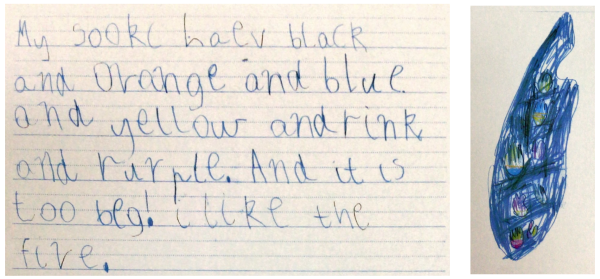 My sookc haev black
and orange and blue
and yellow andrink
and rurple. And it is
too beg! i like the
five.